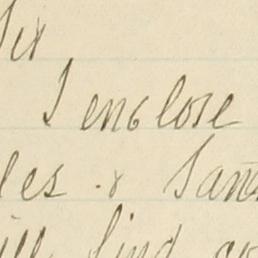 Sir
I enclose
les & San
ill find